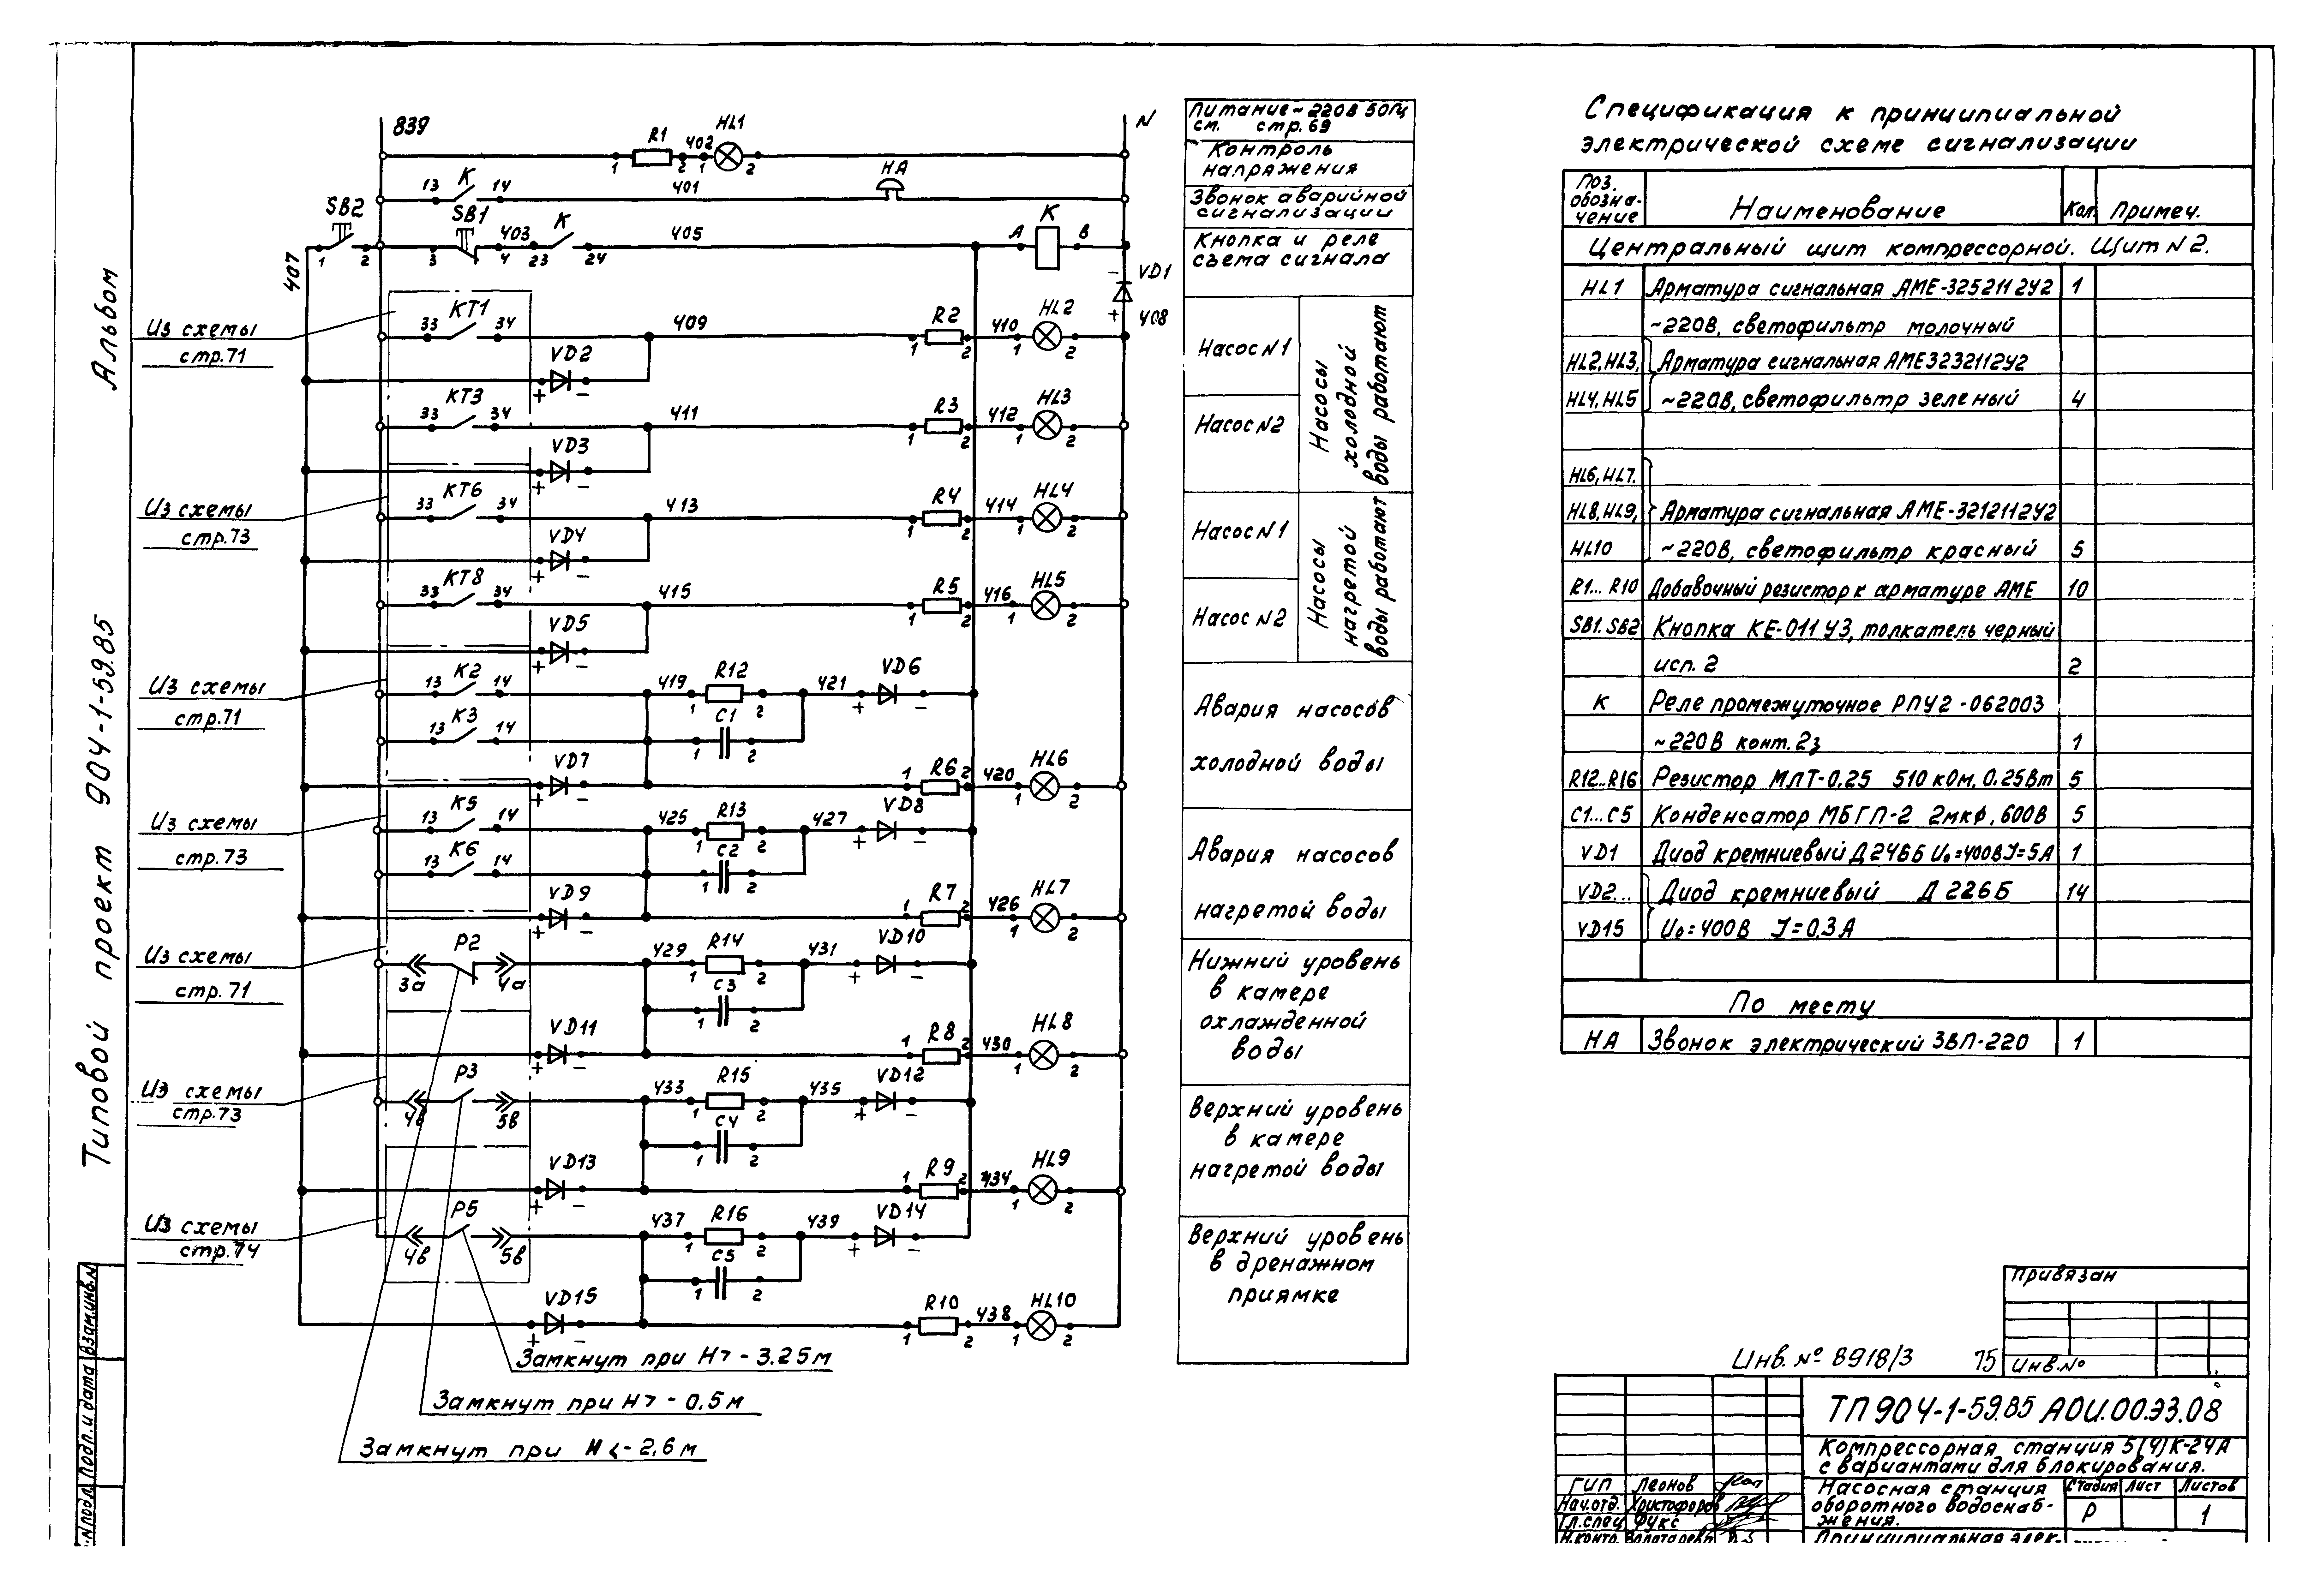 Альбом
Типовой проект 904-1-59.85
839
N
R1
402
HL1
1
2
1
2
K
13
14
401
HA
SB2
SB1
K
407
1
2
3
4
403
23
24
405
A
K
B
VD1
408
Из схемы
стр.71
KT1
33
34
409
R2
410
HL2
VD2
KT3
33
34
411
R3
412
HL3
VD3
Из схемы
стр.73
KT6
33
34
413
R4
414
HL4
VD4
KT8
33
34
415
R5
416
HL5
VD5
Из схемы
стр.71
K2
13
14
419
R12
421
VD6
K3
13
14
C1
VD7
R6
420
HL6
Из схемы
стр.73
K5
13
14
425
R13
427
VD8
K6
13
14
C2
VD9
R7
426
HL7
Из схемы
стр.71
P2
3а
4а
429
R14
431
VD10
C3
VD11
R8
430
HL8
Из схемы
стр.73
P3
4в
5в
433
R15
435
VD12
C4
VD13
R9
434
HL9
Из схемы
стр.74
P5
4в
5в
437
R16
439
VD14
C5
VD15
R10
438
HL10
Замкнут при H>-3.25м
Замкнут при H>-0,5м
Замкнут при H<-2,6м
Питание ~220В 50Гц
см. стр.69
Контроль
напряжения
Звонок аварийной
сигнализации
Кнопка и реле
съема сигнала
Насос N1
Насос N2
Насосы
холодной
воды работают
Насос N1
Насос N2
Насосы
нагретой
воды работают
Авария насосов
холодной воды
Авария насосов
нагретой воды
Нижний уровень
в камере
охлажденной
воды
Верхний уровень
в камере
нагретой воды
Верхний уровень
в дренажном
приямке
Спецификация к принципиальной
электрической схеме сигнализации
Поз. обозна-чение Наименование Кол. Примеч.
Центральный щит компрессорной. Щит N2.
HL1 Арматура сигнальная АМЕ-3252112У2 1
~220В, светофильтр молочный
HL2,HL3, Арматура сигнальная АМЕ323211242
HL4,HL5 ~220В, светофильтр зеленый 4
HL6,HL7.
HL8,HL9, Арматура сигнальная АМЕ-321211242
HL10 ~220В, светофильтр красный 5
R1...R10 Добавочный резистор к арматуре АМЕ 10
SB1.SB2 Кнопка КЕ-011 У3, толкатель черный
исп. 2 2
K Реле промежуточное РПУ2-062003
~220В конт.2з 1
R12...R16 Резистор МЛТ-0.25 510 кОм, 0.25Вт 5
C1...C5 Конденсатор МБГП-2 2мкф, 600В 5
VD1 Диод кремниевый Д246Б Uо=400В J=5А 1
VD2... Диод кремниевый Д 226Б 14
VD15 Uо=400В J=0,3А
По месту
НА Звонок электрический ЗВП-220 1
Привязан
Инв.№ 8918/3 75 Инв.№
ТП904-1-59.85 АОИ.00.ЭЗ.08
Компрессорная станция 5(4)К-24А
с вариантами для блокирования.
Насосная станция
оборотного водоснаб-
жения.
Стадия Лист Листов
Р 1
ГИП Леонов
Нач.отд. Христофоров
Гл.спец Фукс
Н.контр.
Принципиальная элек-
N подл. Подп. и дата Взам.инв.N